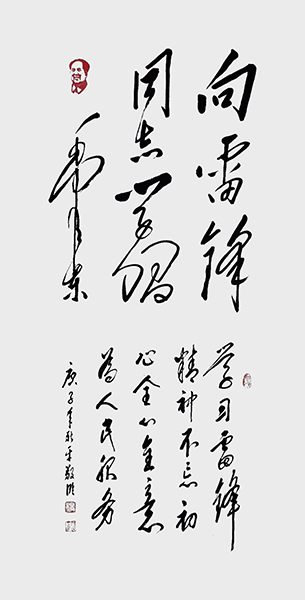 向雷锋
同志学習
毛泽东
学习雷锋
精神不忘初
心全心全意
为人民服务
庚子年秋